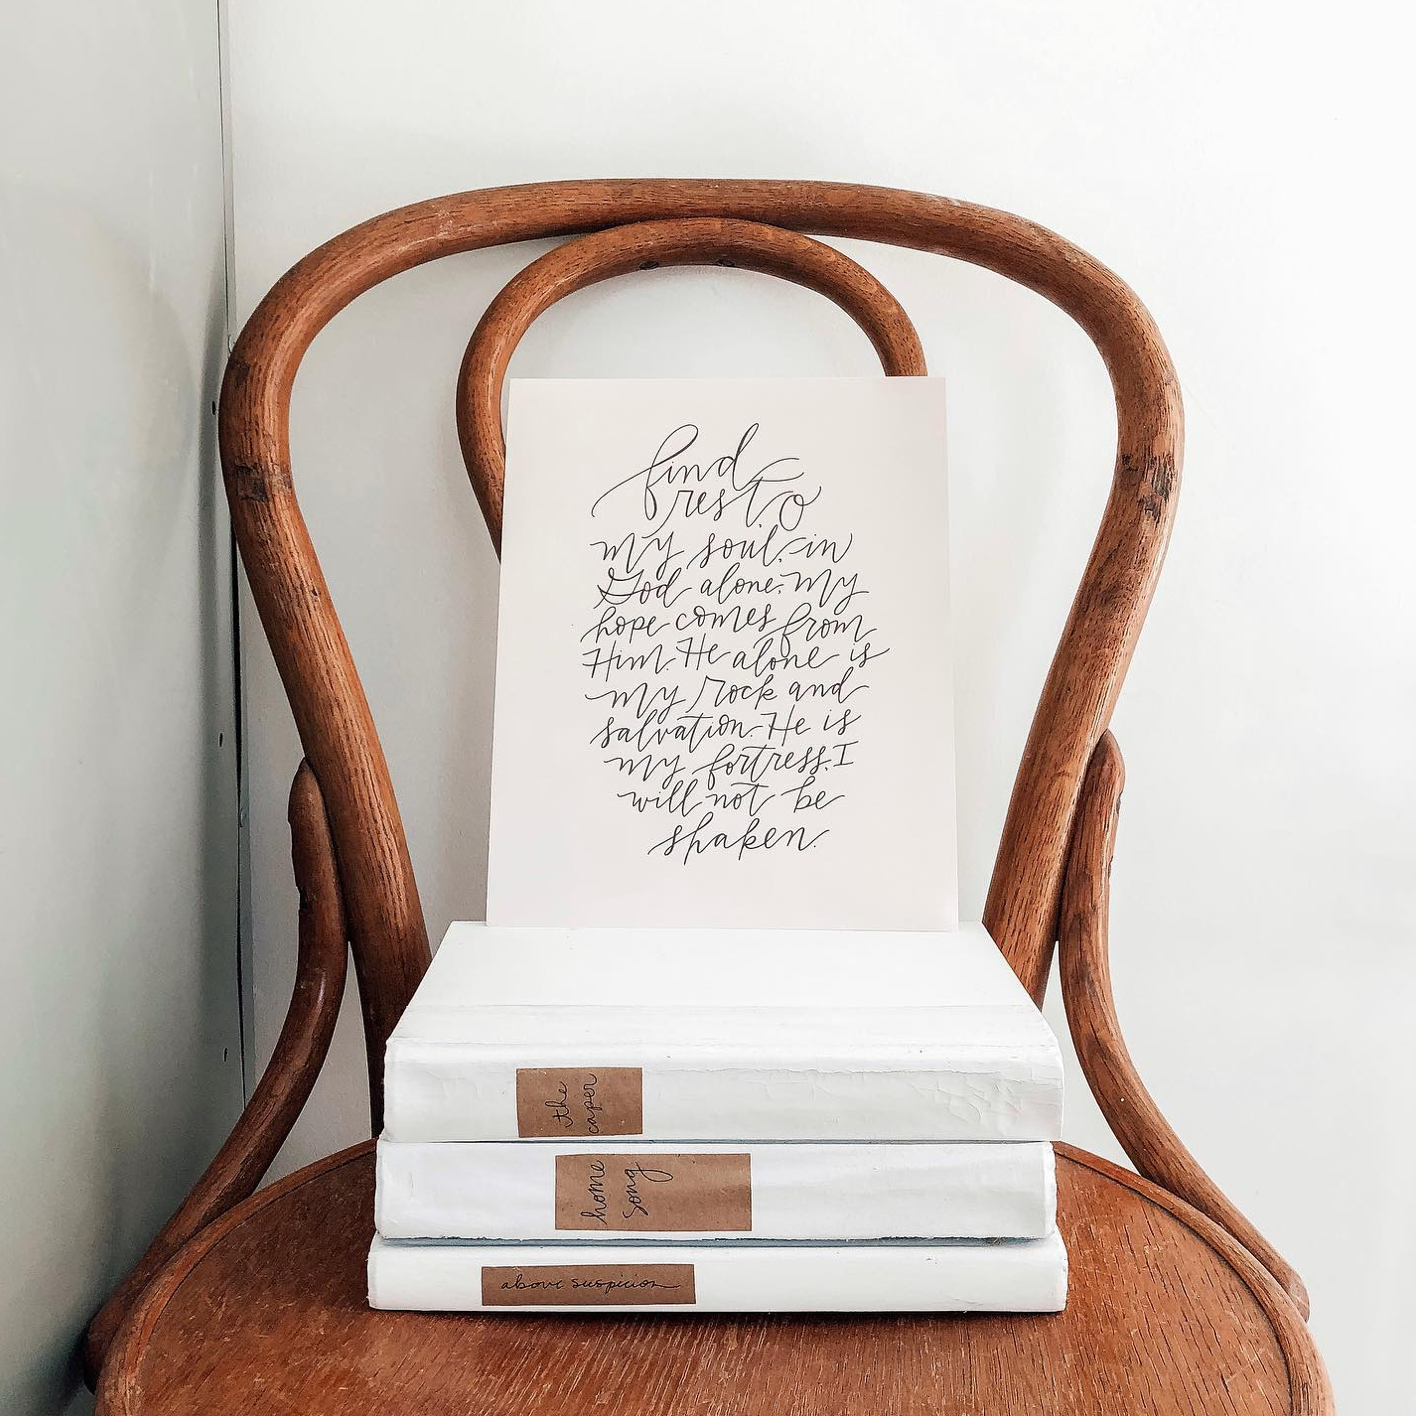 find
rest, O
my soul, in
God alone. My
hope comes from
Him. He alone is
my rock and
salvation. He is
my fortress. I
will not be
shaken.
the
caper
home
song
above suspicion